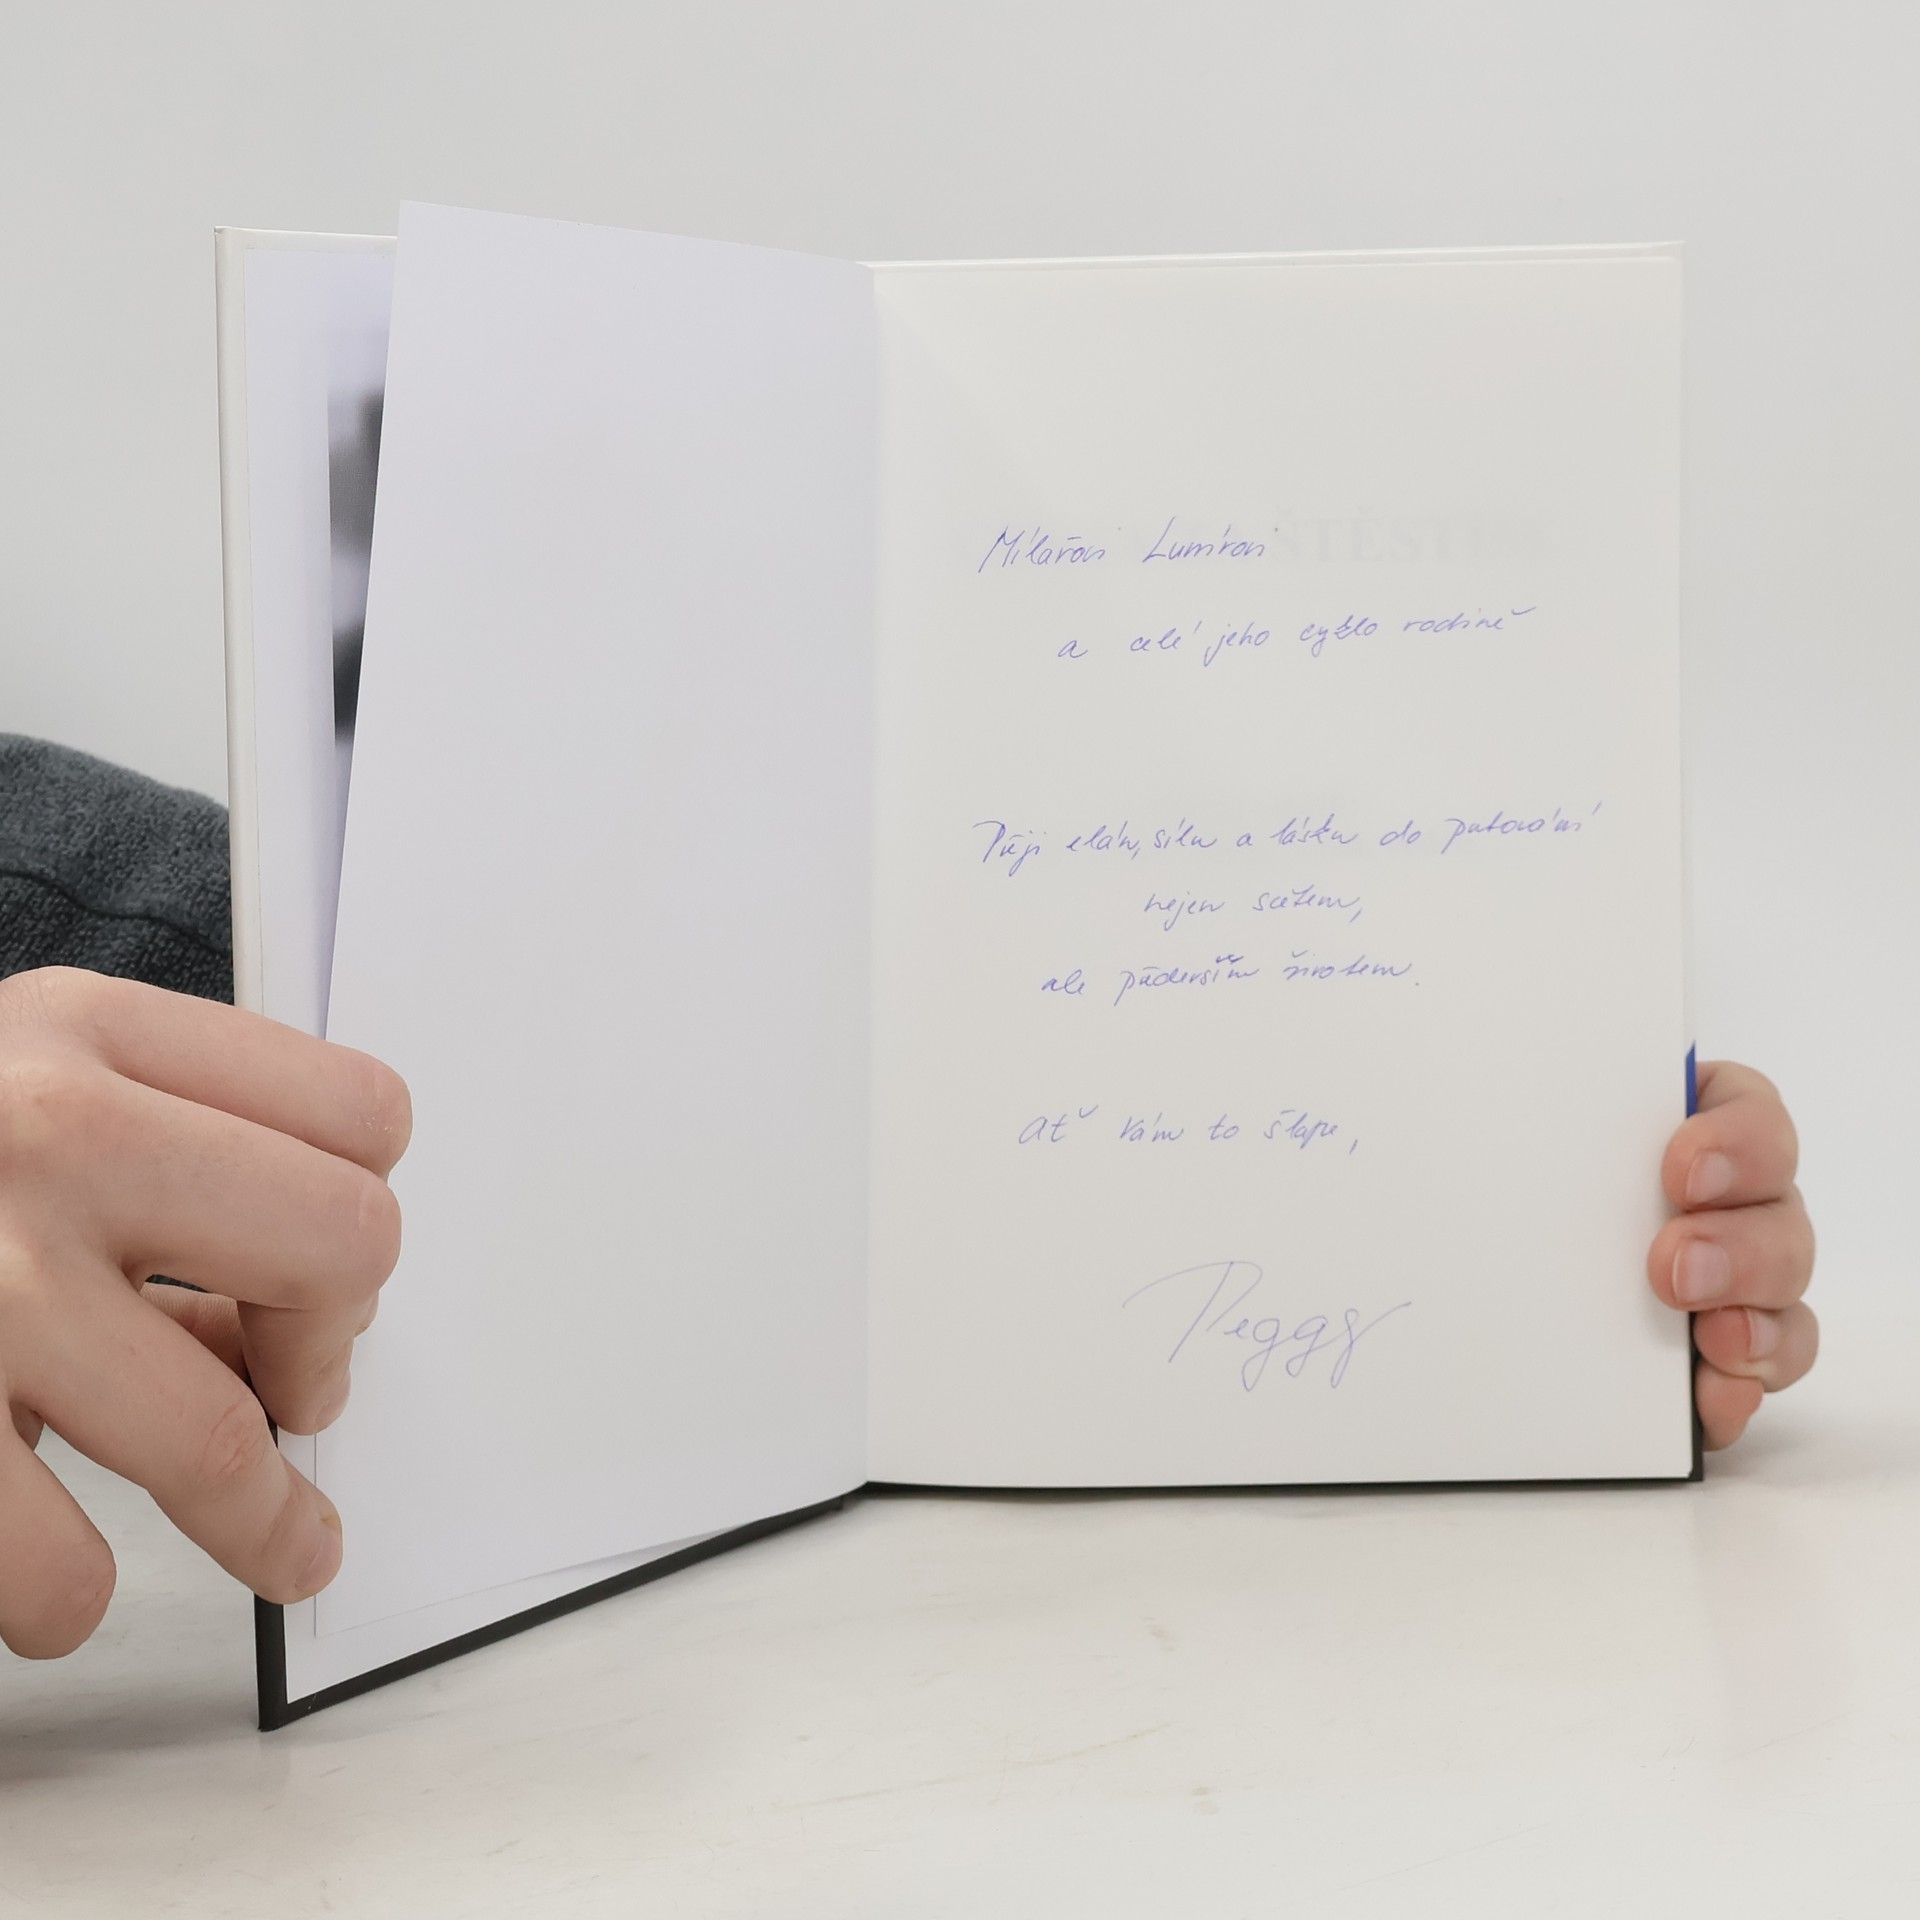 Milařovi Lumírovi
a celé jeho cyklo rodině
Přeji elán, sílu a lásku do putování
nejen světem,
ale především životem.
Ať Vám to šlape,
Peggy
ŠTĚS